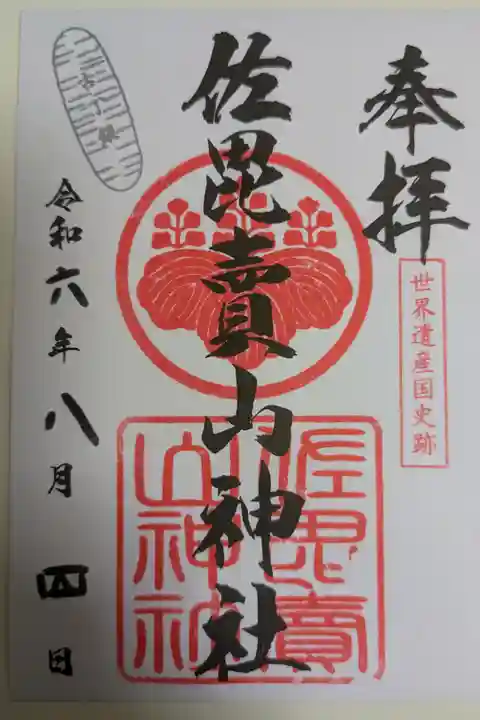 奉拝
世界遺産国史跡
佐毘賣山神社
佐毘賣
山神社
令和六年八月四日